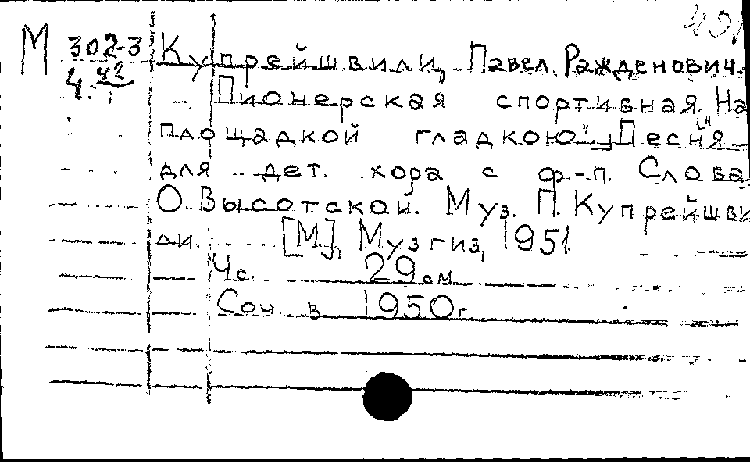 М 302-3 Купрейшвили, Павел Ражденович.
4. 42 Пионерская спортивная. На
площадкой гладкою... Песня
для дет. хора с ф.-п. Слова
О. Высотской. Муз. П. Купрейшви
ли. [М], Музгиз, 1951
4 с. 29 см.
Соч. в 1950г.